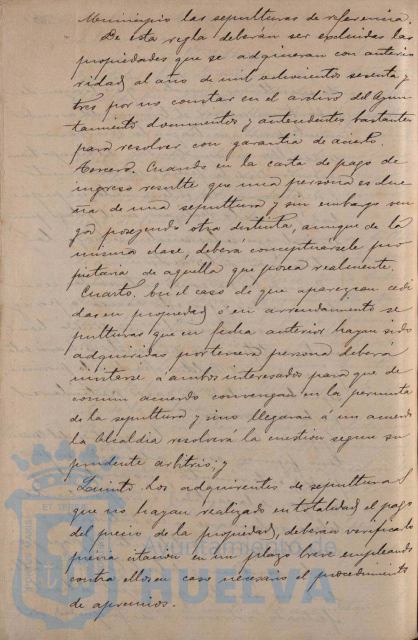 Municipio las sepulturas de referencia.
De esta regla deberán ser excluidas las
propiedades que se adquirieran con anterio
ridad al año de mil ochocientos sesenta y
tres por no constar en el archivo del Ayun
tamiento documentos y antecedentes bastantes
para resolver con garantia de acierto.
Tercero. Cuando en la carta de pago de
ingreso resulte que una persona es due
ña de una sepultura y sin embargo ven
ga poseyendo otra distinta, aunque de la
misma clase, deberá conceptuársele pro
pietaria de aquella que posea realmente.
Cuarto. En el caso de que aparezcan cedi
das en propiedad ó en arrendamiento se
pulturas que en fecha anterior hayan sido
adquiridas por tercera persona deberá
invitarse á ambos interesados para que de
comun acuerdo convengan en la permuta
de la sepultura y sino llegaran á un acuerdo
la Alcaldia resolverá la cuestion segun su
prudente arbitrio; y
Quinto. Los adquirentes de sepulturas
que no hayan realizado en totalidad el pago
del precio de la propiedad, deberán verificarlo
previa citacion en un plazo breve empleando
contra ellos en caso necesario el procedimiento
de apremios.
HUELVA